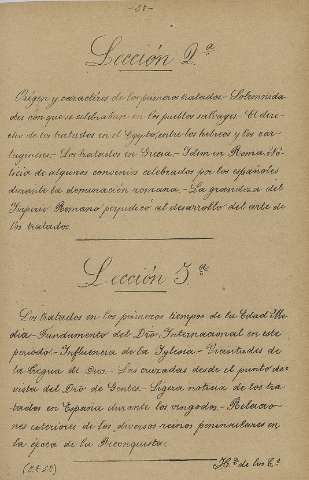 Lección 2.ª
Origen y caractéres de los primeros tratados.- Solemnida
des con que se celebraban en los pueblos salvages.- El dere
cho de los tratados en el Egipto, entre los hebreos y los car-
tagineses.- Los tratados en Grecia.- Idem en Roma.- No
ticia de algunos convenios celebrados por los españoles
durante la dominación romana.- La grandeza del
Imperio Romano perjudicó al desarrollo del arte de
los tratados.
Lección 3.ª
Los tratados en los primeros tiempos de la Edad Me
dia.- Fundamento del Dro. Internacional en este
periodo.- Influencia de la Iglesia.- Vicisitudes de
la Tregua de Dios.- Las cruzadas desde el punto de
vista del Dro de Gentes.- Ligera noticia de los tra
tados en España durante los visigodos.- Relacio
nes exteriores de los diversos reinos peninsulares en
la época de la Reconquista.
H.ª de los T.ˢ